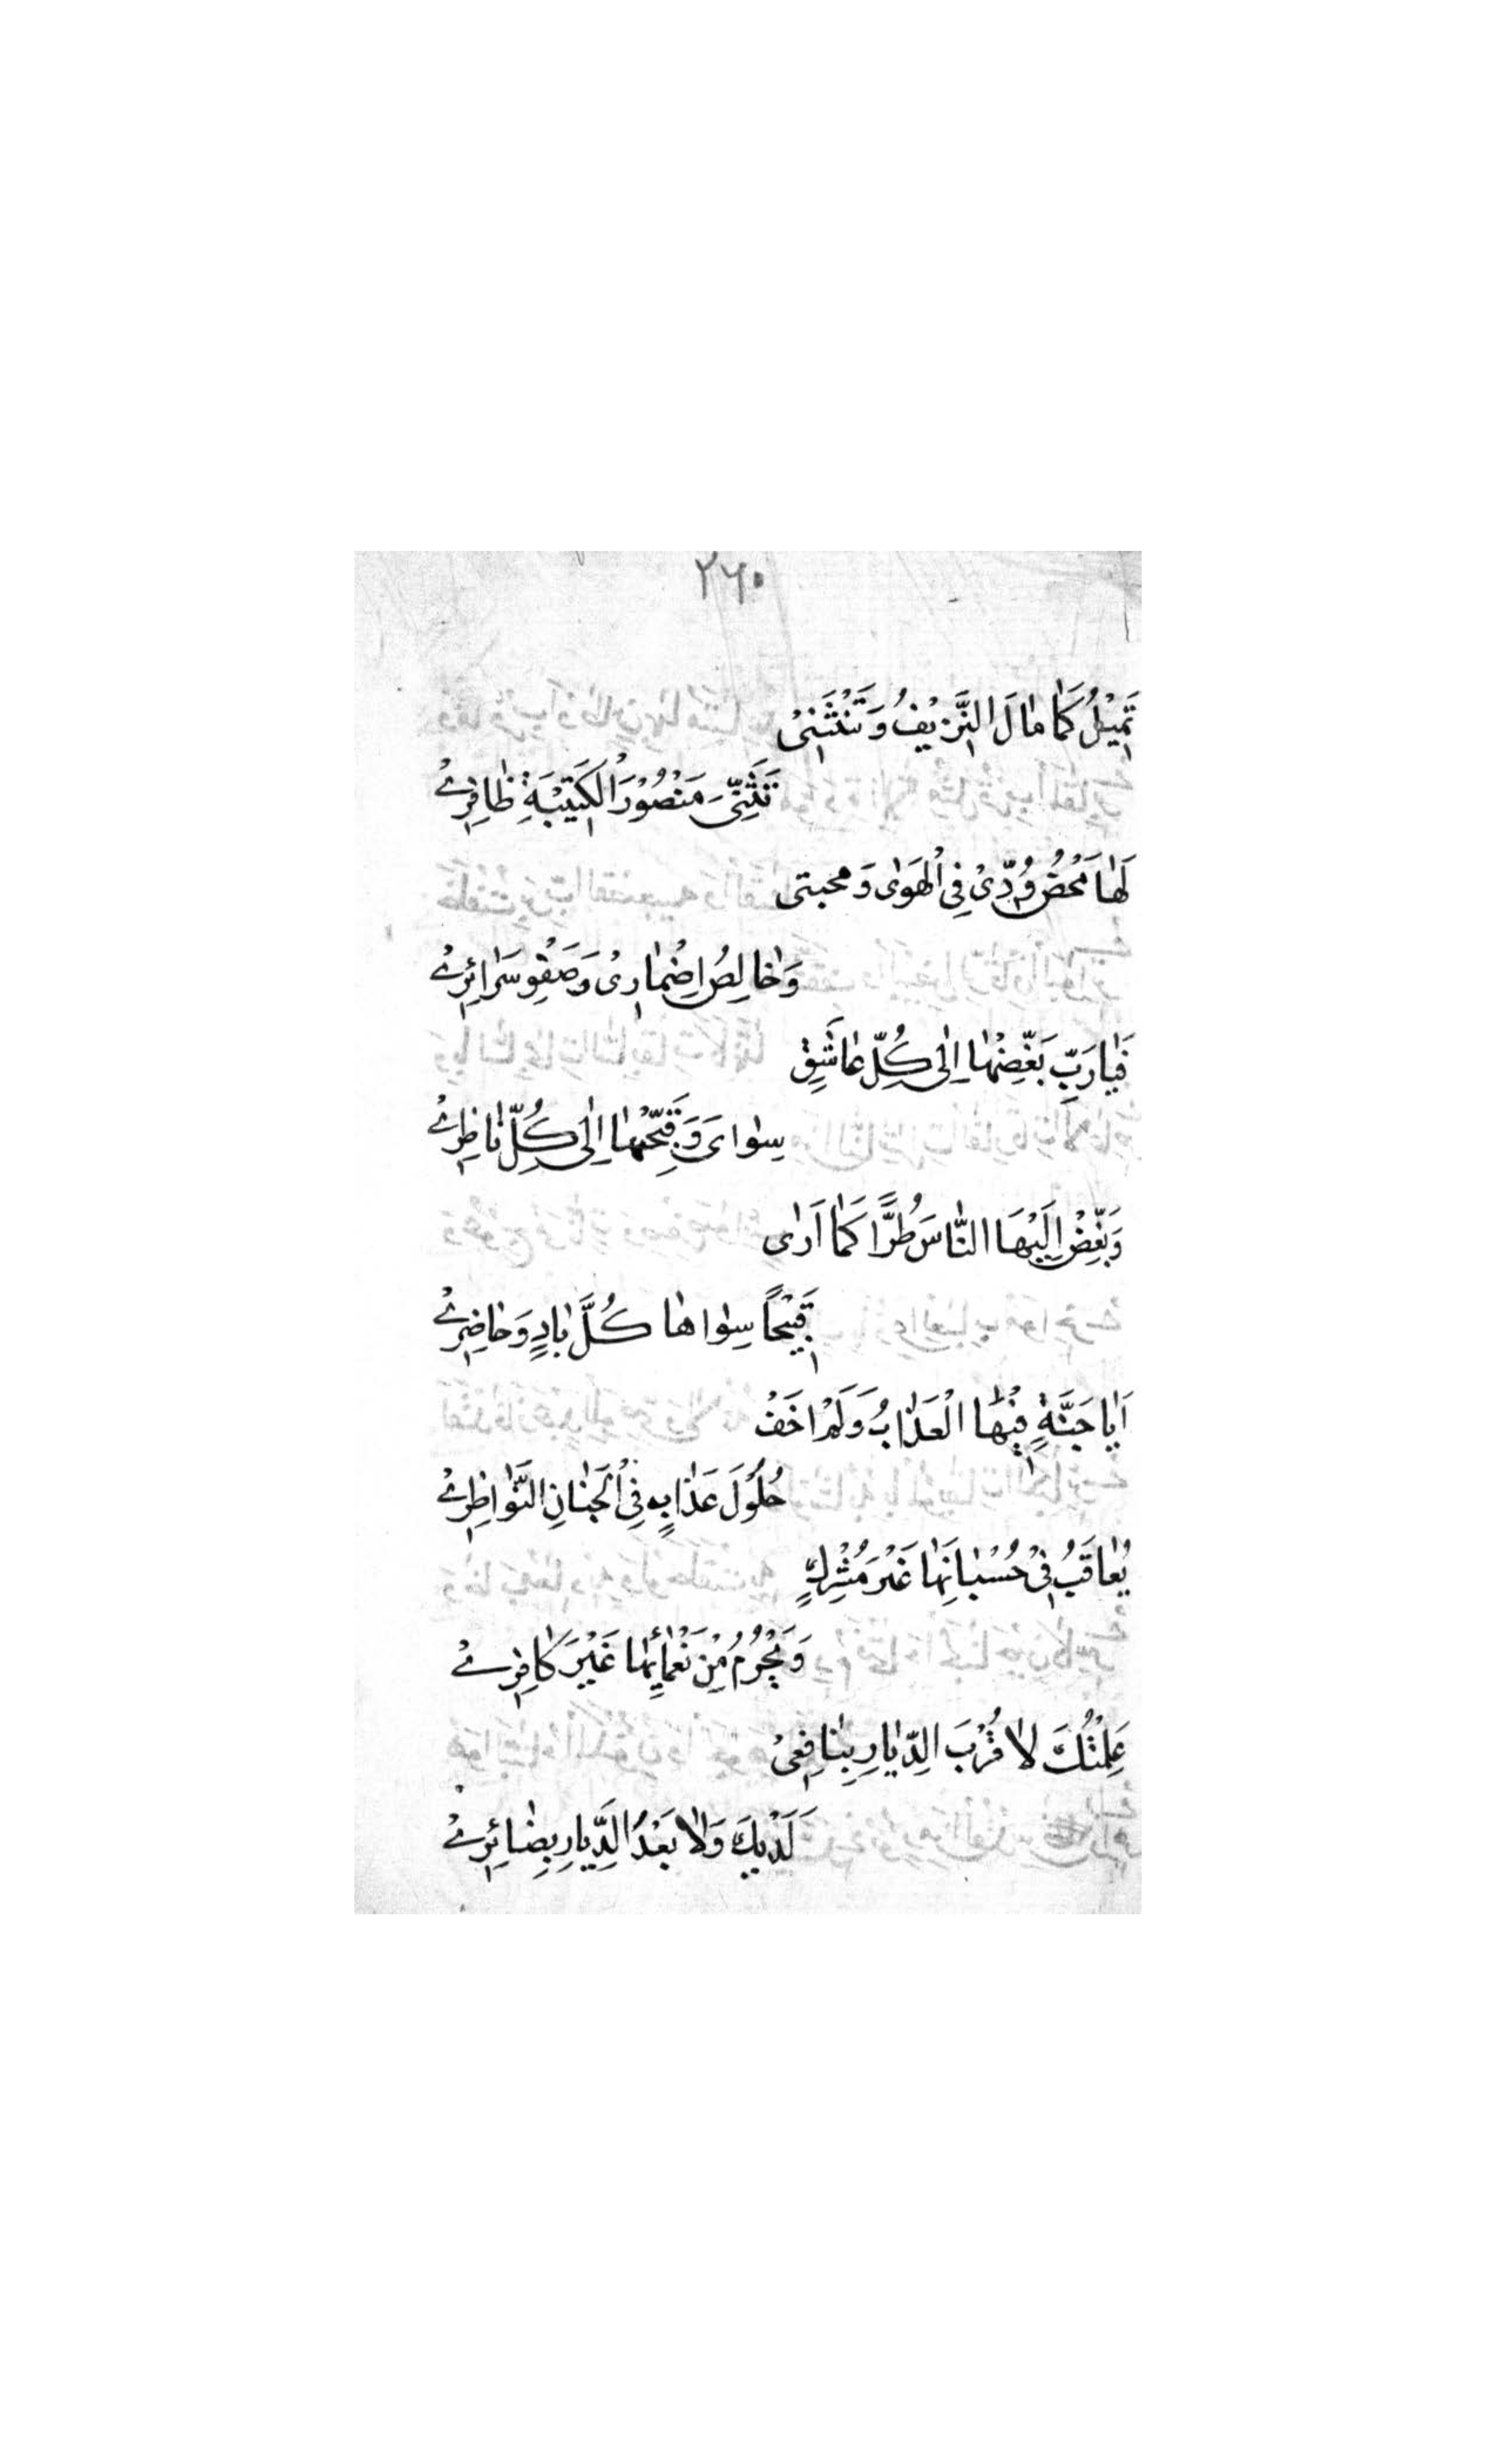 ٢٦٠
تَمِيْلُ كَمٰا مٰالَ النَّزِيْفُ وَتَنْثَنِىْ
تَثَنِّىَ مَنْصُوْرِ الْكَتِيْبَةِ ظٰافِرِ
لَهٰا مَحْضُ وُدِّىْ فِى الْهَوٰى وَمحبتى
وَخٰالِصُ اِضْمٰارِىْ وَصَفْوِ سَرٰائِرِىْ
فَيٰارَبِّ بَغِّضْهٰا اِلٰى كُلِّ عٰاشَقٍ
سِوٰاىَ وَقَبِّحْهٰا اِلٰى كُلِّ نٰاظِرِ
وَبَغِّضْ اِلَيْهَا النّٰاسَ طُرًّا كَمٰا اَرٰى
قَبِيْحاً سِوٰاهٰا كُلَّ بٰادٍ وَحٰاضِرِ
اَيٰا جَنَّةٍ فِيْهٰا الْعَذٰابُ وَلَمْ اَخَفْ
حُلُوْلَ عَذٰابٍ فِى الْجِنٰانِ النَّوٰاظِرِ
يُعٰاقَبُ فِىْ حُسْبٰانِهٰا غَيْرَ مُشْرِكٍ
وَيُحْرَمُ مِنْ نَعْمٰائِهٰا غَيْرَ كٰافِرِ
عَلِمْتُكَ لاٰ قُرْبَ الدِّيٰارِ بِنٰافِعِىْ
لَدَيْكَ وَلاٰ بَعْدُ الدِّيٰارِ بِضٰائِرِىْ